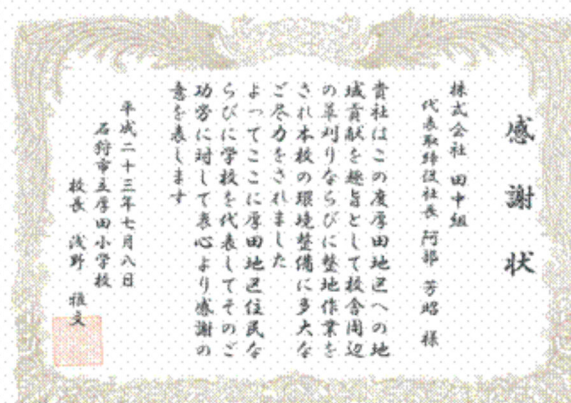 感謝状
株式会社 田中組
代表取締役社長 阿部 芳昭 様
貴社はこの度厚田地区への地
域貢献を趣旨として校舎周辺
の草刈りならびに整地作業を
され本校の環境整備に多大な
ご尽力をされました
よってここに厚田地区住民な
らびに学校を代表してそのご
功労に対して衷心より感謝の
意を表します
平成二十三年七月八日
石狩市立厚田小学校
校長 浅野 雅文